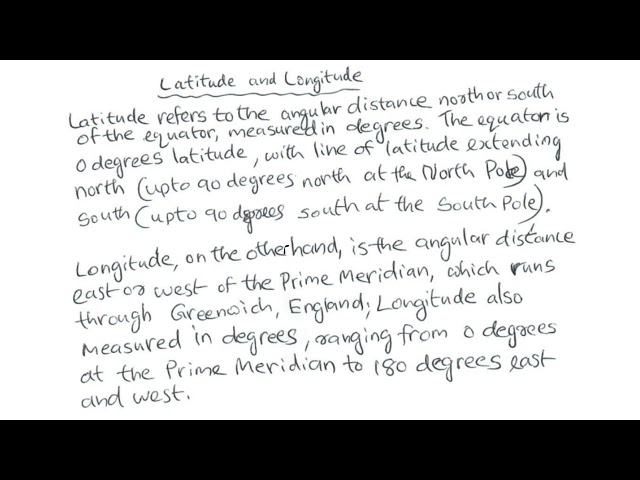 Latitude and Longitude
Latitude refers to the angular distance north or south
of the equator, measured in degrees. The equator is
0 degrees latitude, with line of latitude extending
north (upto 90 degrees north at the North Pole) and
south (upto 90 degrees south at the South Pole).
Longitude, on the otherhand, is the angular distance
east or west of the Prime Meridian, which runs
through Greenwich, England; Longitude also
measured in degrees, ranging from 0 degrees
at the Prime Meridian to 180 degrees east
and west.